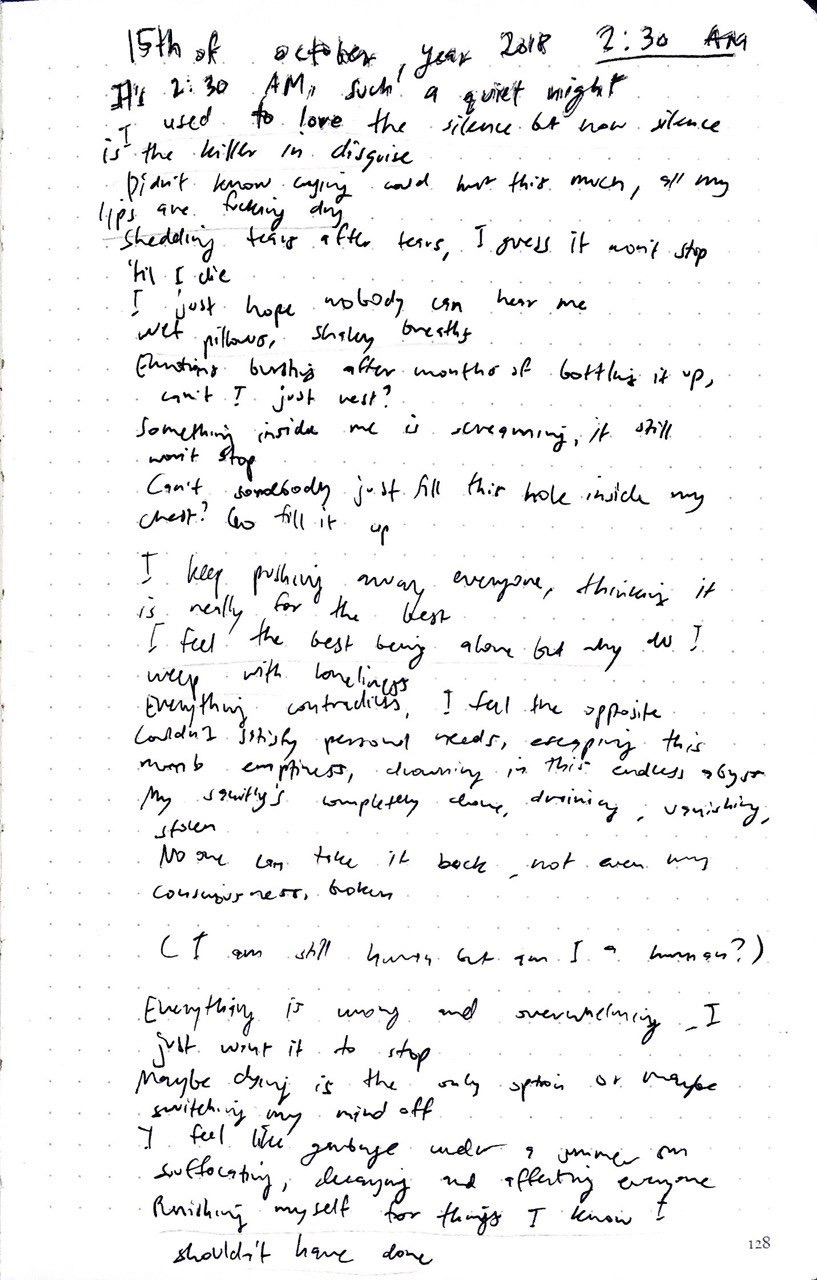 15th of october, year 2018 2:30 AM
It's 2:30 AM, such a quiet night
I used to love the silence but now silence
is the killer in disguise
Didn't know crying could hurt this much, all my
lips are fucking dry
Shedding tears after tears, I guess it won't stop
'til I die
I just hope nobody can hear me
wet pillows, shaky breaths
Emotions bursting after months of bottling it up,
can't I just rest?
Something inside me is screaming, it still
won't stop
Can't somebody just fill this hole inside my
chest? Go fill it up
I keep pushing away everyone, thinking it
is really for the best
I feel the best being alone but why do I
weep with loneliness
Everything contradicts, I feel the opposite
Couldn't satisfy personal needs, escaping this
numb emptiness, drowning in this endless abyss
My sanity's completely done, draining, vanishing,
stolen
No one can take it back, not even my
consciousness, broken
(I am still human but am I a human?)
Everything is wrong and overwhelming, I
just want it to stop
Maybe dying is the only option or maybe
switching my mind off
I feel like garbage under a summer sun
suffocating, decaying and affecting everyone
Punishing myself for things I know I
shouldn't have done
128